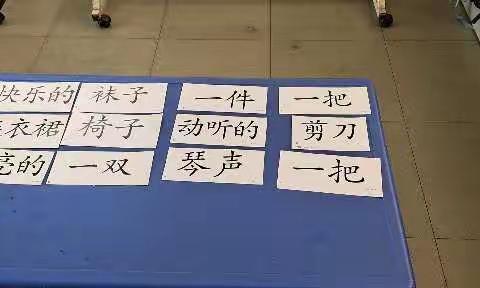 快乐的 袜子 一件 一把
衣裙 椅子 动听的 剪刀
亮的 一双 琴声 一把